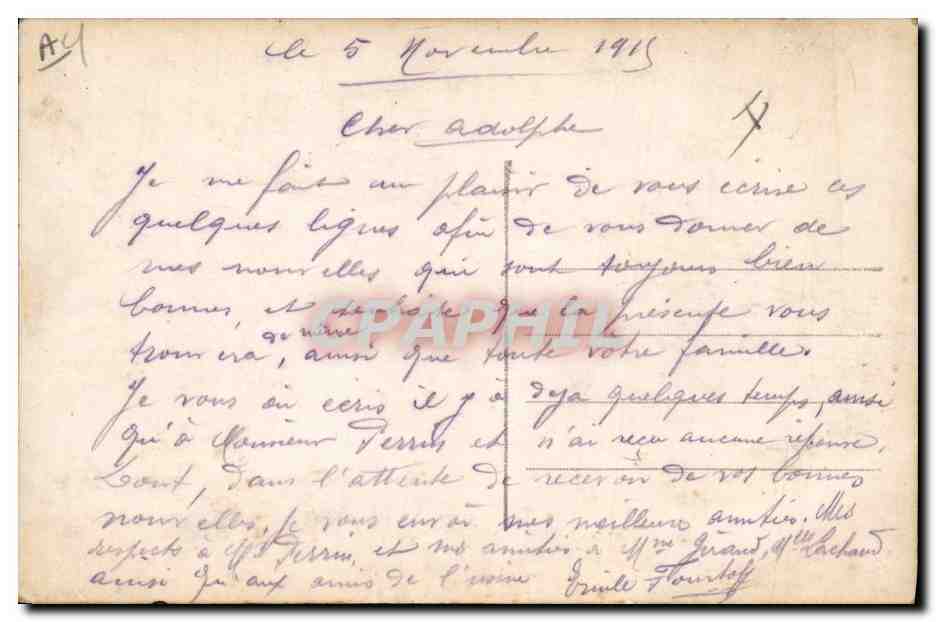 A4
le 5 Novembre 1915
Cher Adolphe
Je me fait un plaisir de vous écrire ces
quelques lignes afin de vous donner de
mes nouvelles qui sont toujours bien
bonnes, et que la présente vous
trouvera de même, ainsi que toute votre famille.
Je vous ai écris il y à deja quelques temps, ainsi
qu'à Monsieur Perrin et n'ai reçu aucune réponse.
dans l'attente de recevoir de vos bonnes
nouvelles, je vous envoi mes meilleures amitiés. Mes
respects à Mr Perrin, et mes amitiés a Mme Géraud, Mlle Lachaud
ainsi qu'aux amis de l'usine Emile
CPAPHIL